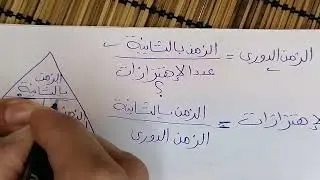 الزمن الدورى = الزمن بالثانية
عدد الإهتزازات
؟
لإهتزازات = الزمن بالثانية
الزمن الدورى
الزمن
بالثانية
الزمن